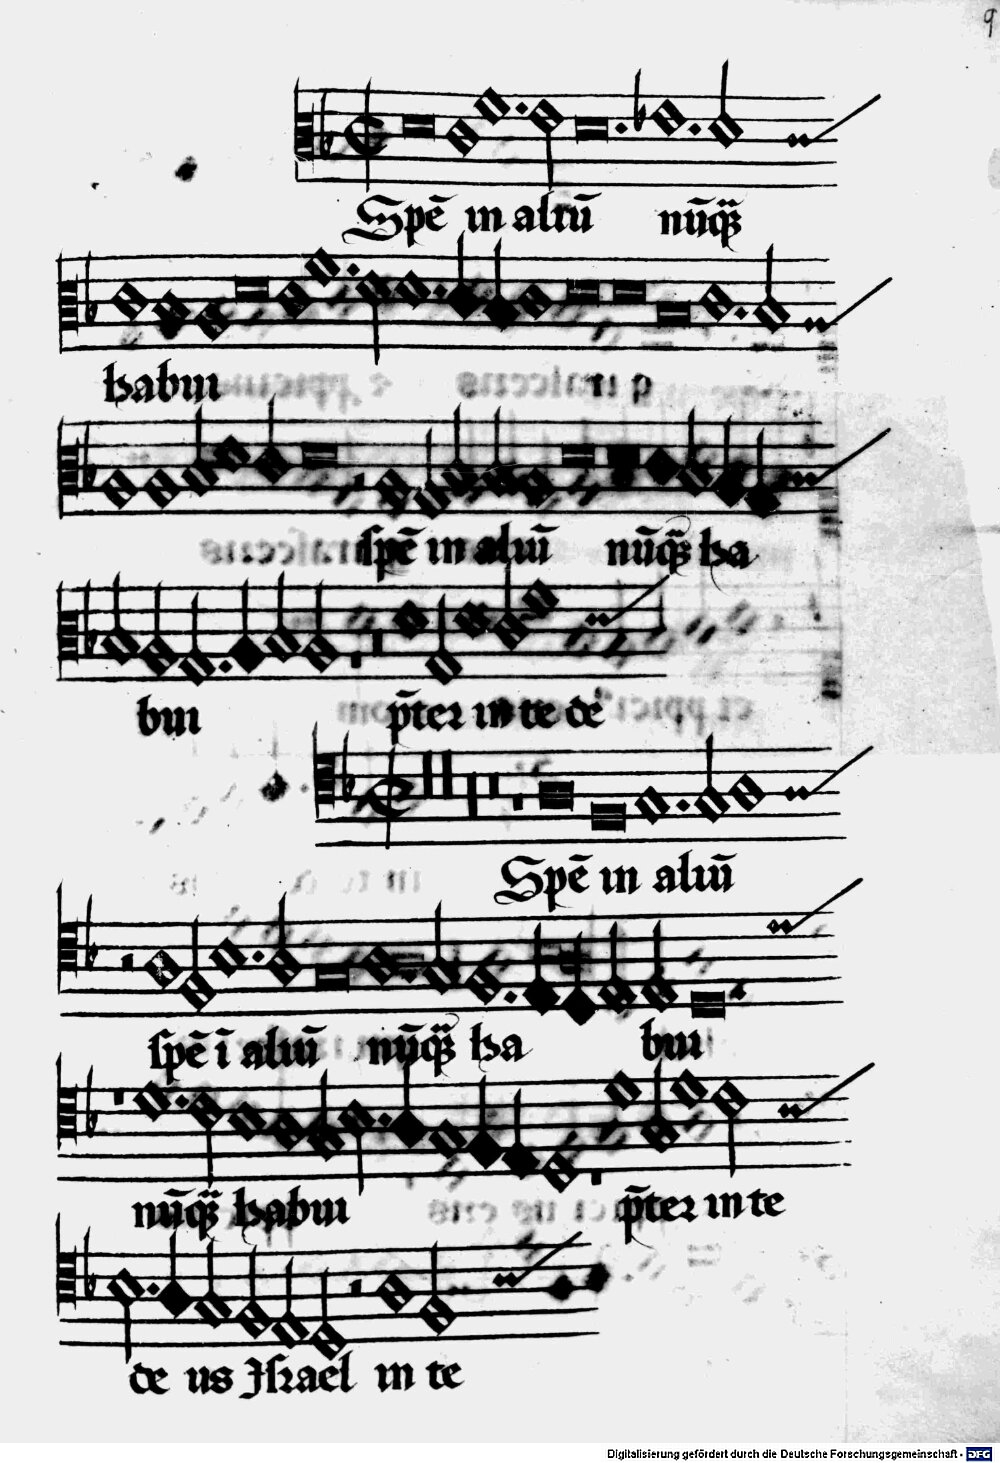 9
Spē in aliū nūq̄ȝ
habui
spē in aliū nūq̄ȝ ha
bui p̄ter in te de
Spē in aliū
spē ī aliū nūq̄ȝ ha bui
nūq̄ȝ habui p̄ter in te
de us Israel in te
Digitalisierung gefördert durch die Deutsche Forschungsgemeinschaft - DFG